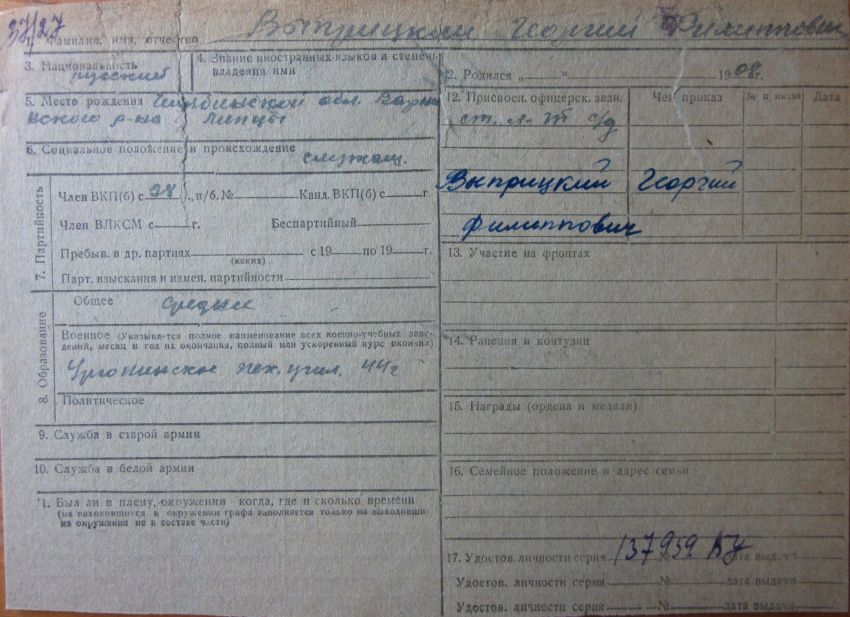 37/27
1. Фамилия, имя, отчество Выприцкий Георгий Филиппович
3. Национальность русский
4. Знание иностранных языков и степень владения ими
5. Место рождения обл.
ского р-на
6. Социальное положение и происхождение служащ.
7. Партийность
Член ВКП(б) с 28 г., п/б. № Канд. ВКП(б) с г.
Член ВЛКСМ с г. Беспартийный
Пребыв. в др. партиях с 19 по 19 г.
(каких)
Парт. взыскания и измен. партийности
8. Образование
Общее среднее
Военное (Указывается полное наименование всех военно-учебных заве-
дений, месяц и год их окончания, полный или ускоренный курс окончил)
пех. учил. 44 г
Политическое
9. Служба в старой армии
10. Служба в белой армии
11. Был ли в плену, окружении когда, где и сколько времени
(на находившихся в окружении графа заполняется только на выходивши
из окружения не в составе части)
2. Родился „ “ 1908 г.
12. Присвоен. офицерск. зван. Чей приказ № приказа Дата
ст. л-т
Выприцкий Георгий
Филиппович
13. Участие на фронтах
14. Ранения и контузии
15. Награды (ордена и медали)
16. Семейное положение и адрес семьи
17. Удостов. личности серия 137959 № дата выдачи
Удостов. личности серия № дата выдачи
Удостов. личности серия № дата выдачи